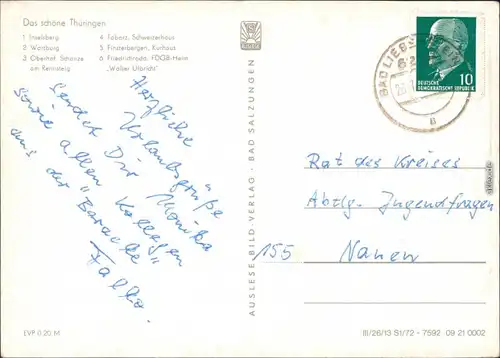 Das schöne Thüringen
1 Inselsberg
2 Wartburg
3 Oberhof, Schanze
am Rennsteig
4 Tabarz, Schweizerhaus
5 Finsterbergen, Kurhaus
6 Friedrichroda, FDGB-Heim
"Walter Ulbricht"
Herzliche
Urlaubsgrüße
sendet Dir Monika
sowie allen Kollegen
aus der "Baracke"
Falko.
AUSLESE-BILD-VERLAG · BAD SALZUNGEN
BAD LIEBENSTEIN
62
a
10
DEUTSCHE
DEMOKRATISCHE REPUBLIK
Rat des Kreises
Abtlg. Jugendfragen
155 Nauen
EVP 0.20 M
III/26/13 S1/72 - 7592 09 21 0002